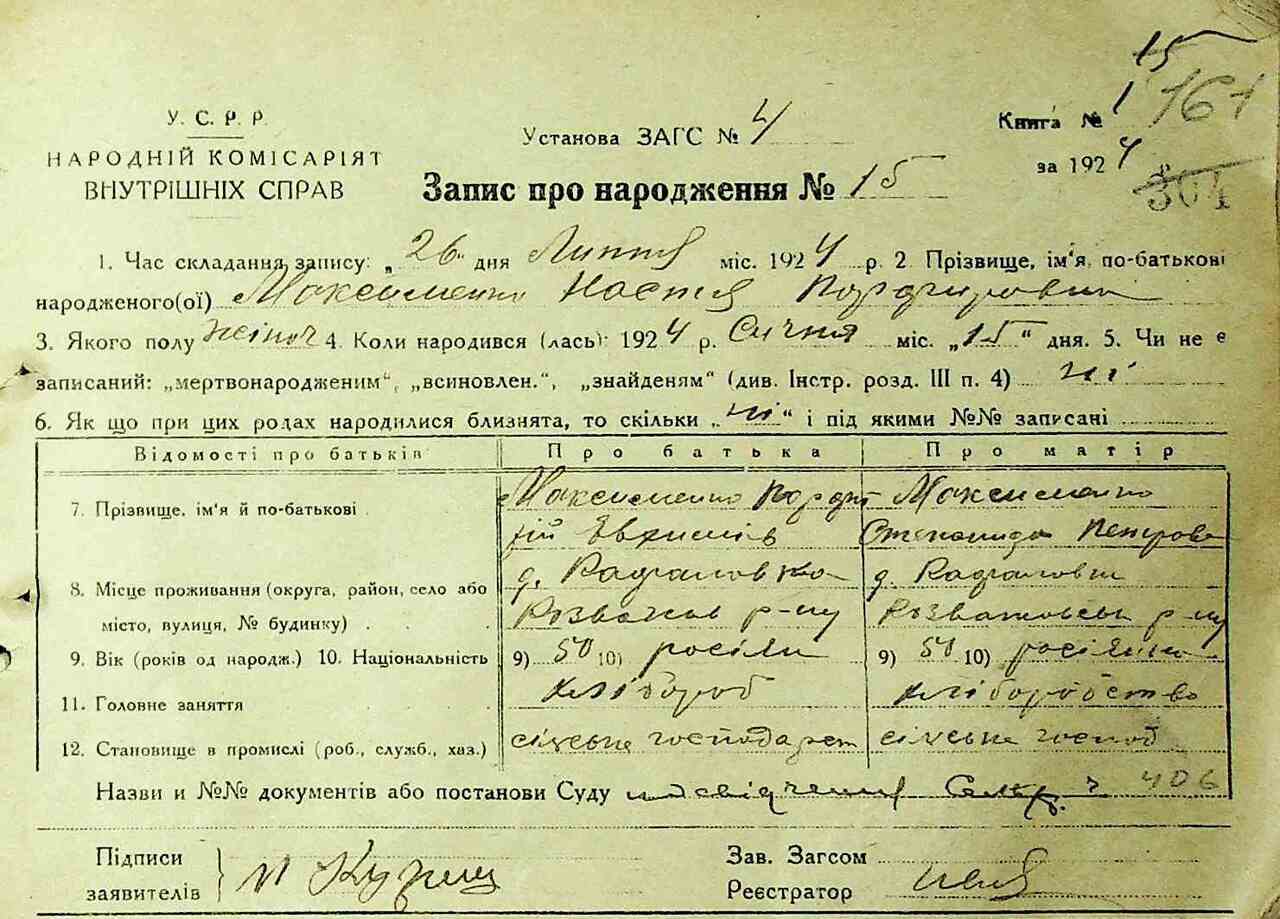 15
У. С. Р. Р.
НАРОДНІЙ КОМІСАРІЯТ
ВНУТРІШНІХ СПРАВ
Установа ЗАГС № 4
Книга № 1
161
за 1924
304
Запис про народження № 15
1. Час складання запису: „26„ дня Липня міс. 1924 р. 2. Прізвище, ім'я, по-батькові
народженого(ої) Максименко Настя Порфировна
3. Якого полу жіноч 4. Коли народився (лась): 1924 р. Січня міс. „15“ дня. 5. Чи не є
записаний: „мертвонародженим“, „всиновлен.“, „знайденям“ (див. Інстр. розд. III п. 4) ні
6. Як що при цих родах народилися близнята, то скільки „ні“ і під якими №№ записані
Відомості про батьків Про батька Про матір
7. Прізвище, ім'я й по-батькові Максименко Порфі Максименко
рій Степанида Петрова
8. Місце проживання (округа, район, село або д. д.
місто, вулиця, № будинку) Розважів р-ну Розважовськ р-ну
9. Вік (років од народж.) 10. Національність 9) 50 10) росіян 9) 50 10) росіянка
11. Головне заняття хлібороб хліборобство
12. Становище в промислі (роб., служб., хаз.) сільське господарст сільське господ
Назви и №№ документів або постанови Суду посвідчення 406
Підписи
заявителів
Зав. Загсом
Реєстратор